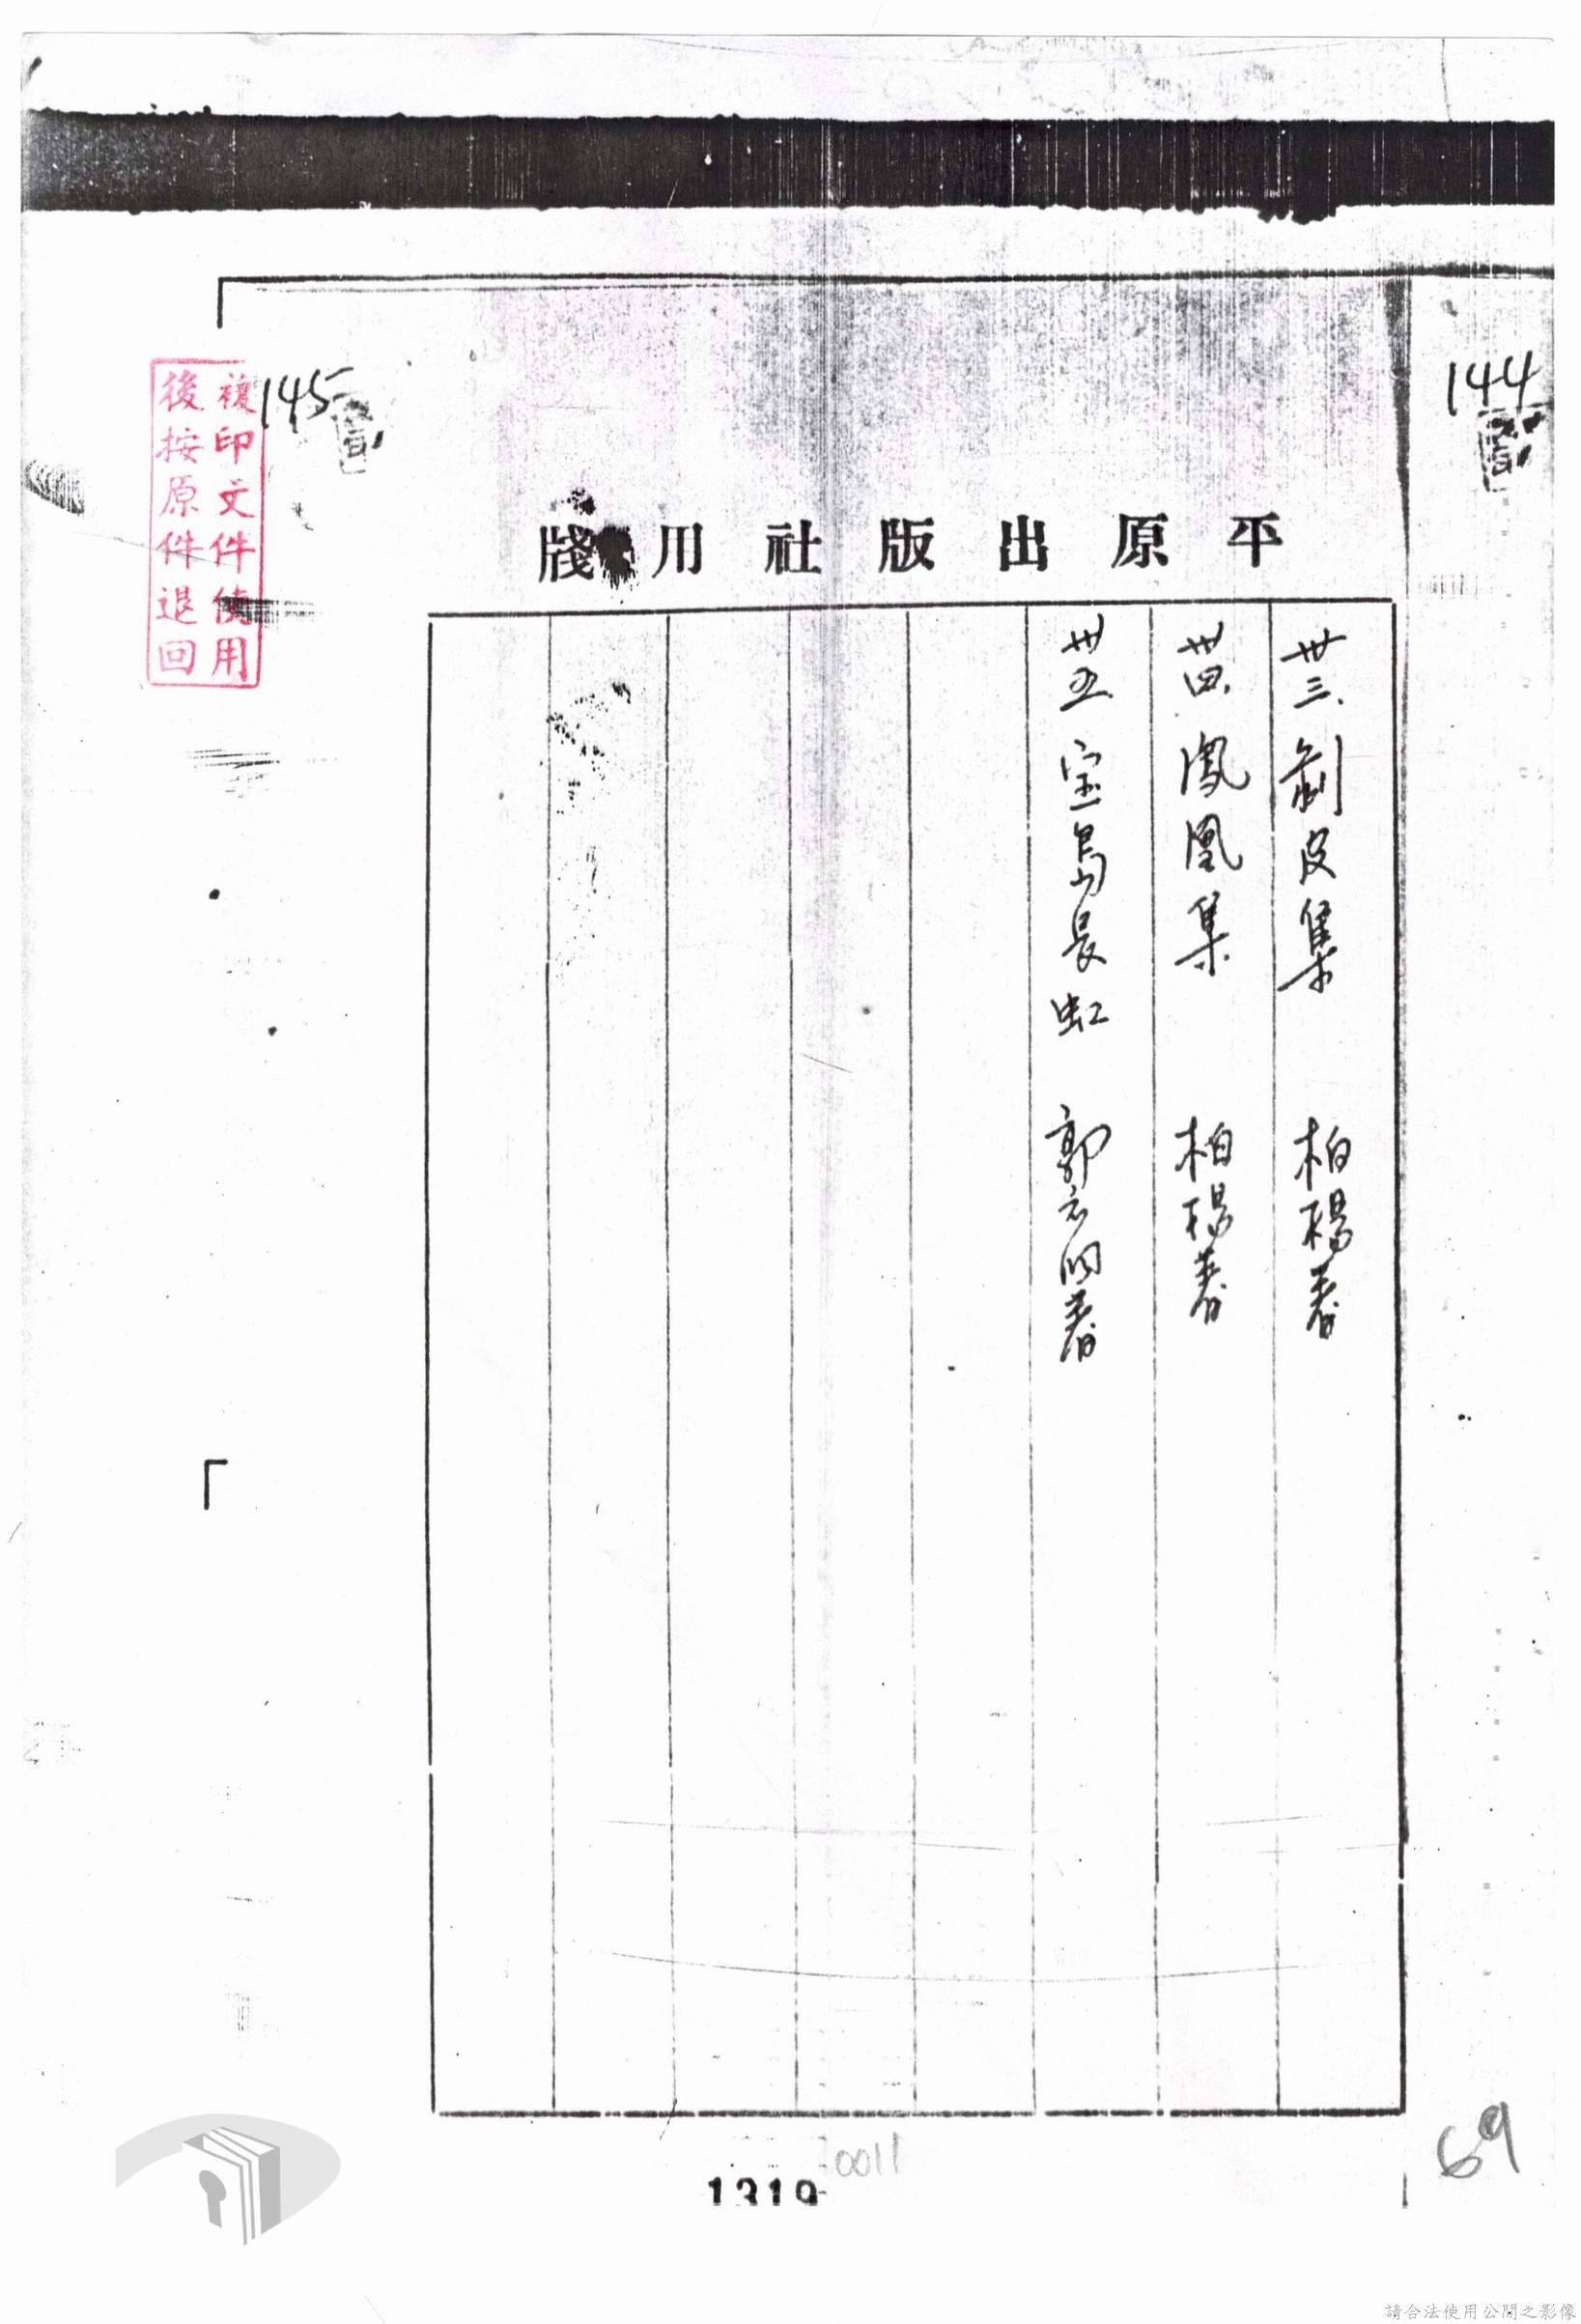 144
145
複印文件使用
後按原件退回
平原出版社用牋
卅三.剝皮集 柏楊著
卅四.鳳凰集 柏楊著
卅五 宝島長虹 郭衣洞著
0011
1319
69
請合法使用公開之影像